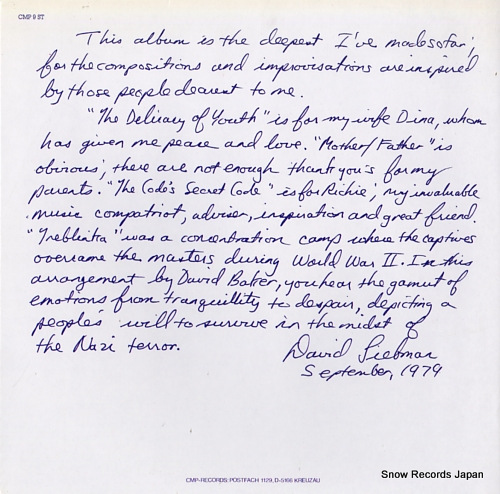 CMP 9 ST
This album is the deepest I've made so far;
for the compositions and improvisations are inspired
by those people dearest to me.
"The Delicacy of Youth" is for my wife Dina, whom
has given me peace and love. "Mother/Father" is
obvious; there are not enough thank you's for my
parents. "The Code's Secret Code" is for Richie; my invaluable
music compatriot, adviser, inspiration and great friend.
"Treblinka" was a concentration camp where the captives
overcame the masters during World War II. In this
arrangement by David Baker, you hear the gamut of
emotions from tranquillity to despair, depicting a
people's will to survive in the midst of
the Nazi terror.
David Liebman
September, 1979
CMP-RECORDS: POSTFACH 1129, D-5166 KREUZAU
Snow Records Japan